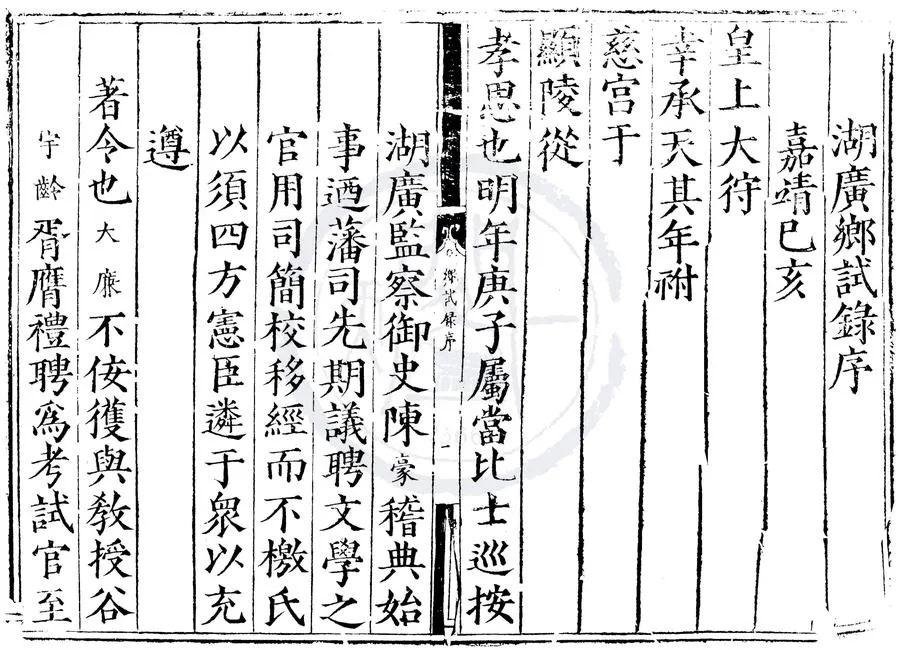 湖廣鄉試錄序
嘉靖已亥
皇上大狩
幸承天其年祔
慈宫于
顯陵從
孝思也明年庚子屬當比士巡按
鄉試錄序
一
湖廣監察御史陳豪稽典始
事迺藩司先期議聘文學之
官用司簡校移經而不檄氏
以須四方憲臣遴于衆以充
遵
著令也大廉不佞獲與敎授谷
宇齡胥膺禮聘爲考試官至